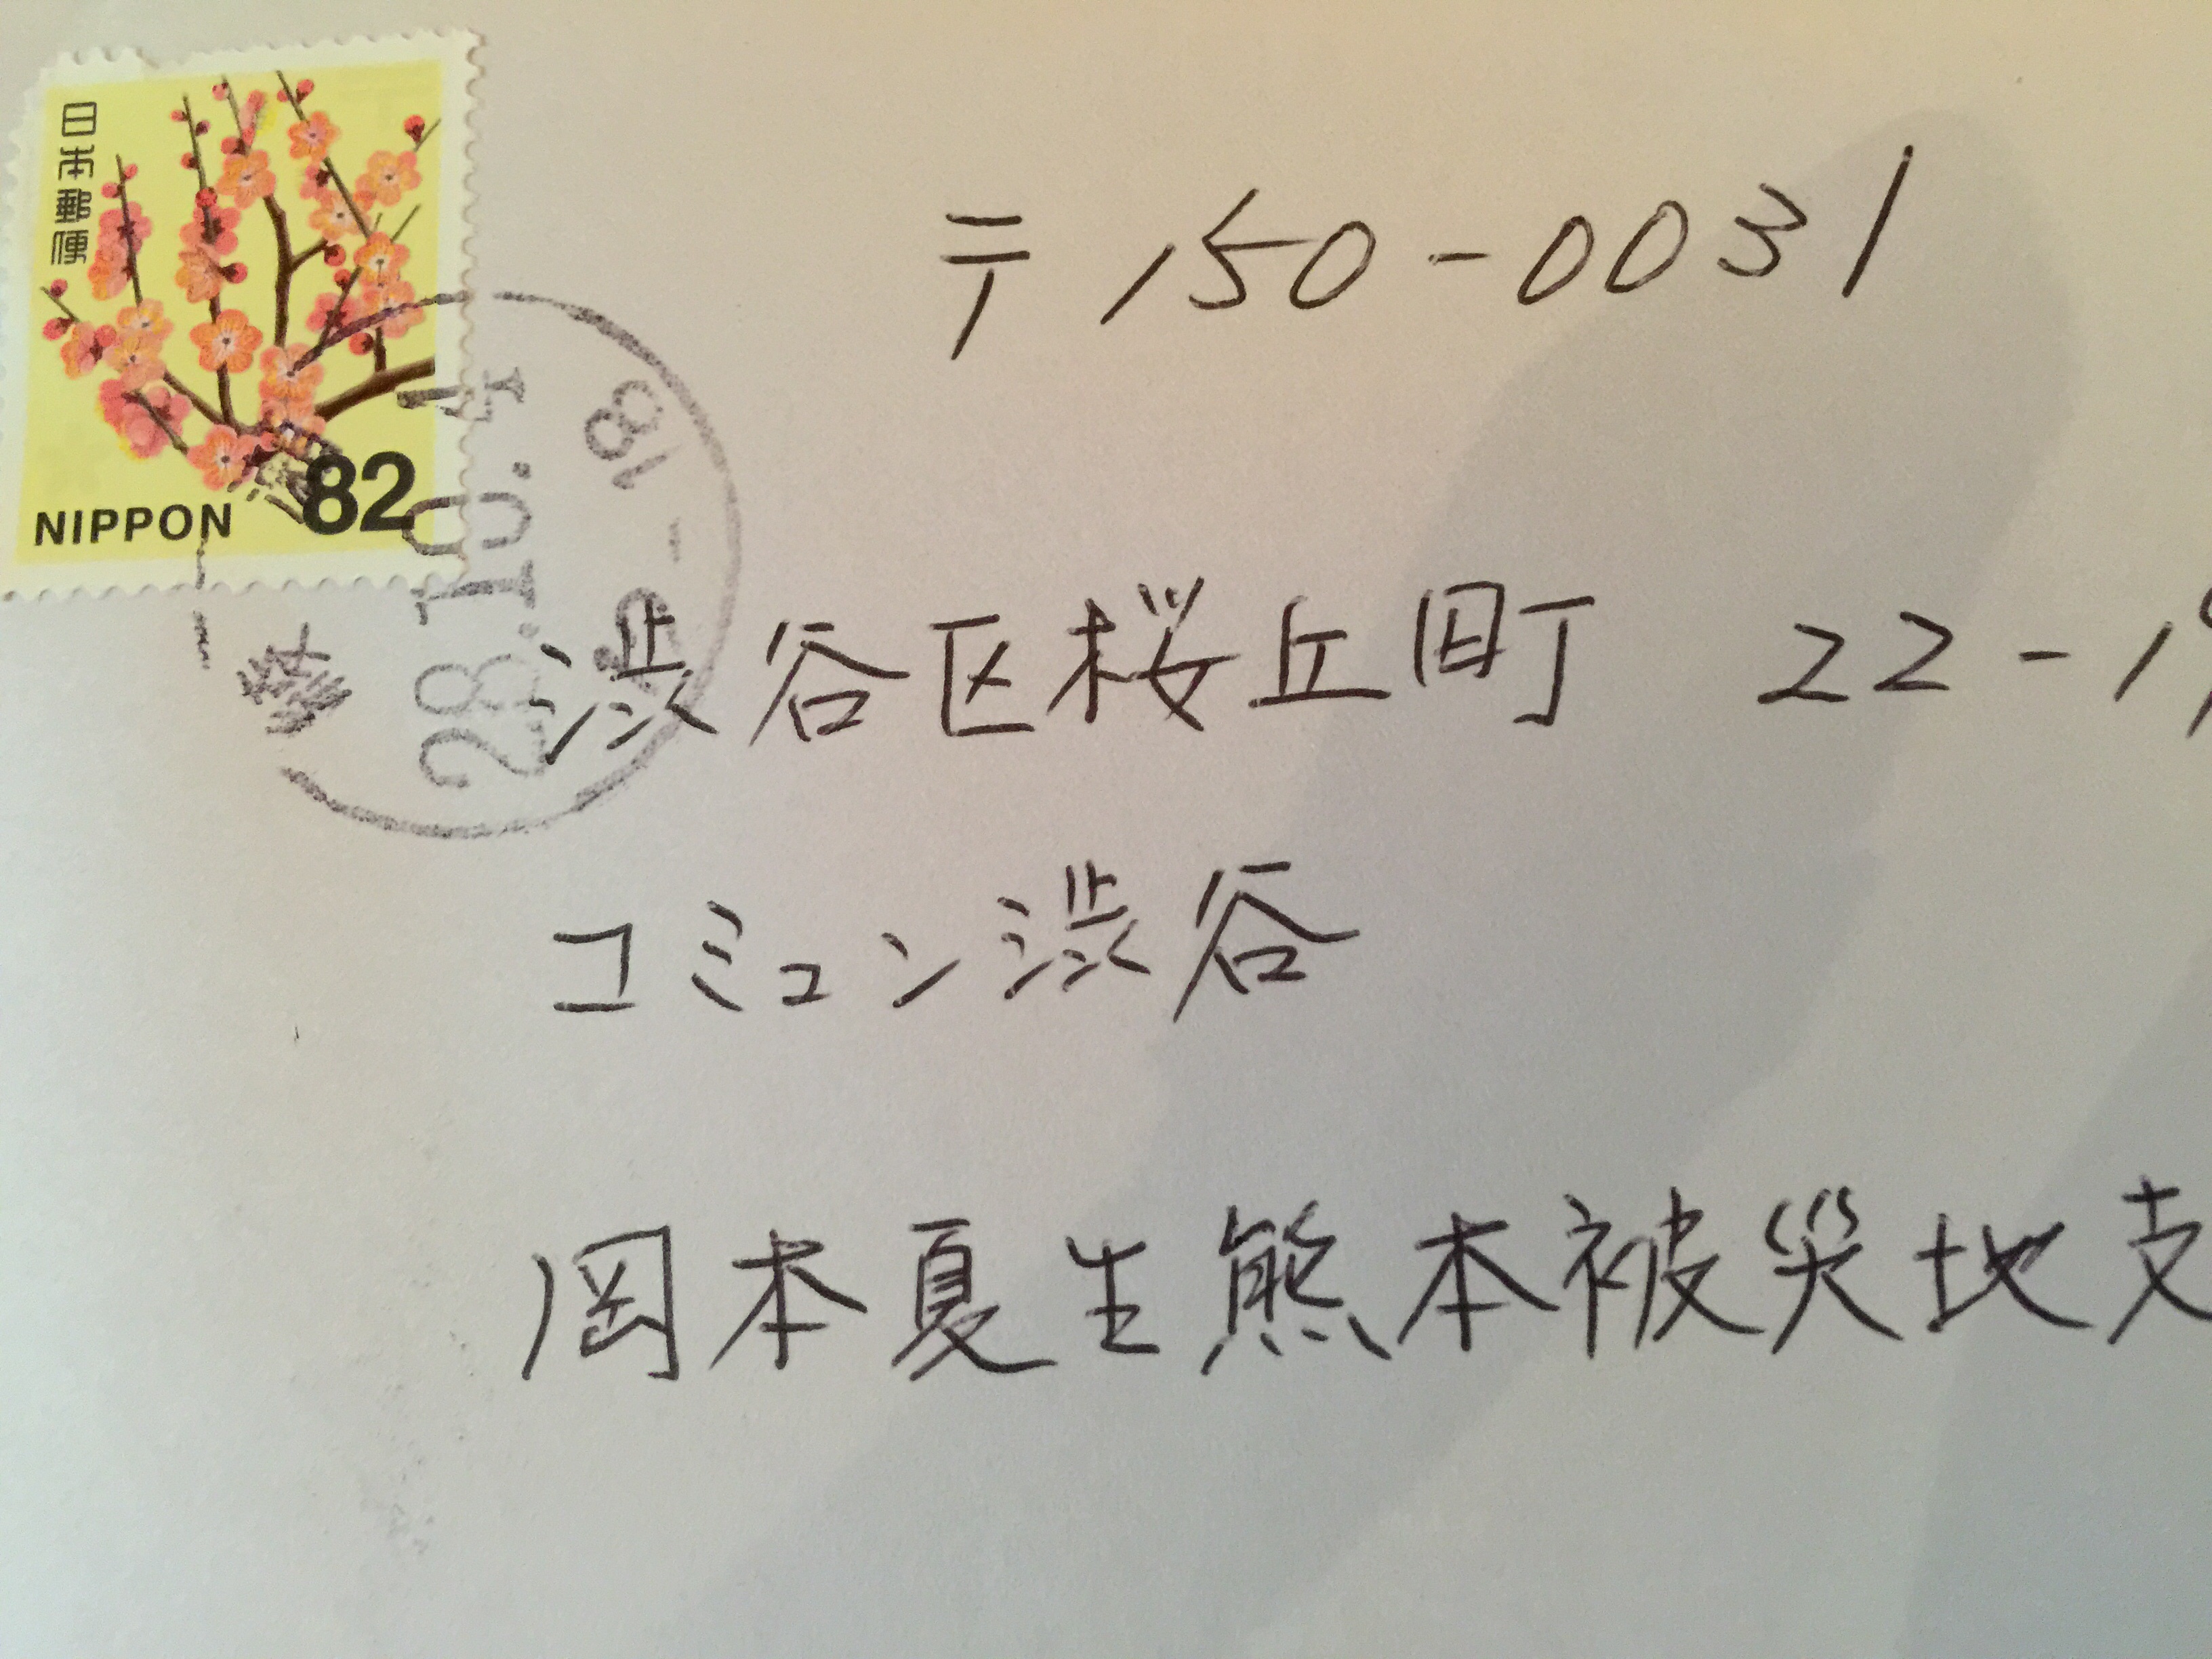 日本郵便
NIPPON 82
28.10.4
18
〒150-0031
渋谷区桜丘町 22-1
コミュン渋谷
岡本夏生熊本被災地支